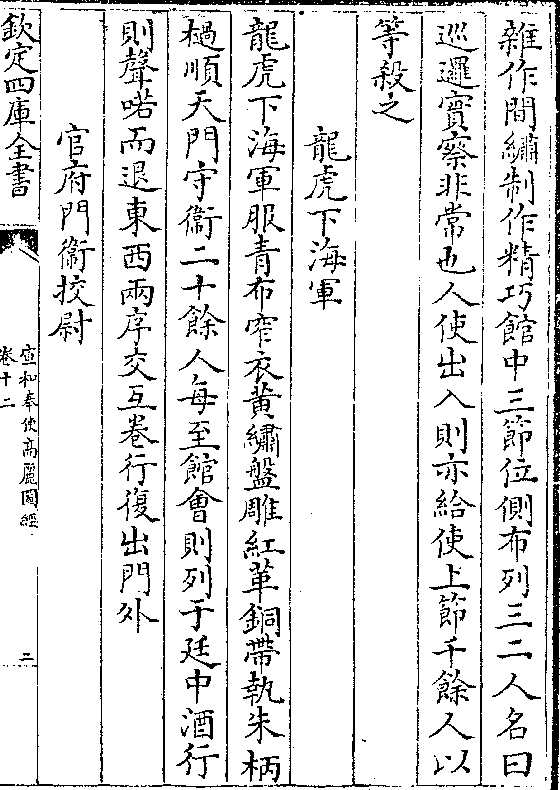 雜作間繡制作精巧館中三節位側布列三二人名曰
巡邏實察非常也人使出入則亦給使上節千餘人以
等殺之
龍虎下海軍
龍虎下海軍服青布窄衣黄繡盤雕紅革銅帶執朱柄
檛順天門守衛二十餘人每至館會則列于廷中酒行
則聲喏而退東西兩序交互卷行復出門外
官府門衛校尉
欽定四庫全書
宣和奉使高麗圖經
卷十二
二